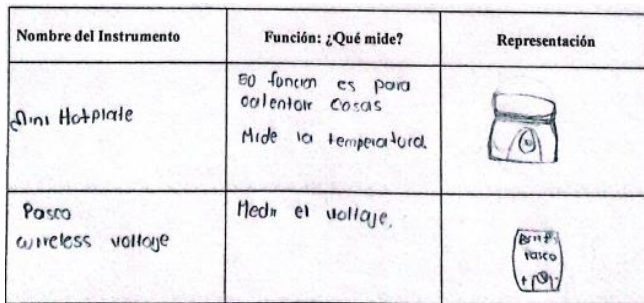 Nombre del Instrumento
Función: ¿Qué mide?
Representación
Mini Hotplate
su funcion es para
calentar cosas
Mide la temperatura.
Pasco
wireless voltaje
Medir el voltaje.
Pasco